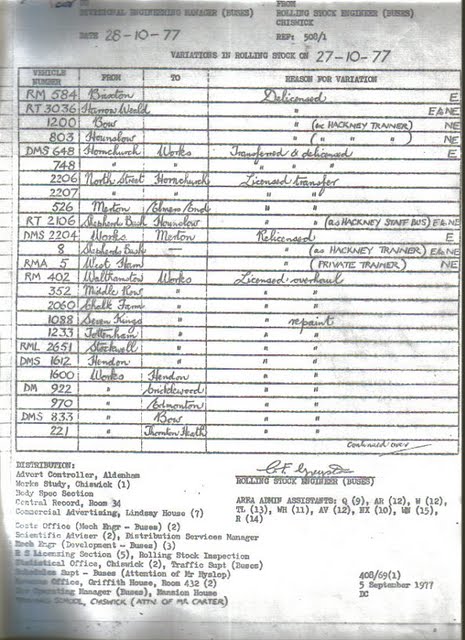 TO FROM
DIVISIONAL ENGINEERING MANAGER (BUSES) ROLLING STOCK ENGINEER (BUSES)
CHISWICK
DATE 28-10-77 REF: 500/1
VARIATIONS IN ROLLING STOCK ON 27-10-77
VEHICLE NUMBER FROM TO REASON FOR VARIATION
RM 584 Brixton Delicensed E
RT 3036 Harrow Weald " E&NE
1200 Bow " (ex HACKNEY TRAINER) NE
803 Hounslow " ( " " " ) NE
DMS 648 Hornchurch Works Transferred & delicensed E
748 " " " " "
2206 North Street Hornchurch Licensed transfer
2207 " " " "
526 Merton Elmers End " "
RT 2106 Shepherds Bush Hounslow " " (as HACKNEY STAFF BUS) E&NE
DMS 2204 Works Merton Relicensed E
8 Shepherds Bush — " (as HACKNEY TRAINER) E&NE
RMA 5 West Ham " (PRIVATE TRAINER) NE
RM 402 Walthamstow Works Licensed overhaul
352 Middle Row " " "
2060 Chalk Farm " " "
1088 Seven Kings " " repaint
1233 Tottenham " " "
RML 2651 Stockwell " " "
DMS 1612 Hendon " " "
1600 Works Hendon " "
DM 922 " Cricklewood " "
970 " Edmonton " "
DMS 833 " Bow " "
221 " Thornton Heath " "
continued over
DISTRIBUTION:
Advert Controller, Aldenham
Works Study, Chiswick (1)
Body Spec Section
Central Record, Room 34
Commercial Advertising, Lindsay House (7)
Costs Office (Mech Engr - Buses) (2)
Scientific Adviser (2), Distribution Services Manager
Mech Engr (Development - Buses) (3)
R S Licensing Section (5), Rolling Stock Inspection
Statistical Office, Chiswick (2), Traffic Supt (Buses)
Schedules Supt - Buses (Attention of Mr Hyslop)
Revenue Office, Griffith House, Room 432 (2)
Bus Operating Manager (Buses), Mansion House
TRAINING SCHOOL, CHISWICK (ATTN OF MR CARTER)
ROLLING STOCK ENGINEER (BUSES)
AREA ADMIN ASSISTANTS: Q (9), AR (12), W (12),
TL (13), WH (11), AV (12), NX (10), WN (15),
R (14)
408/69(1)
5 September 1977
DC